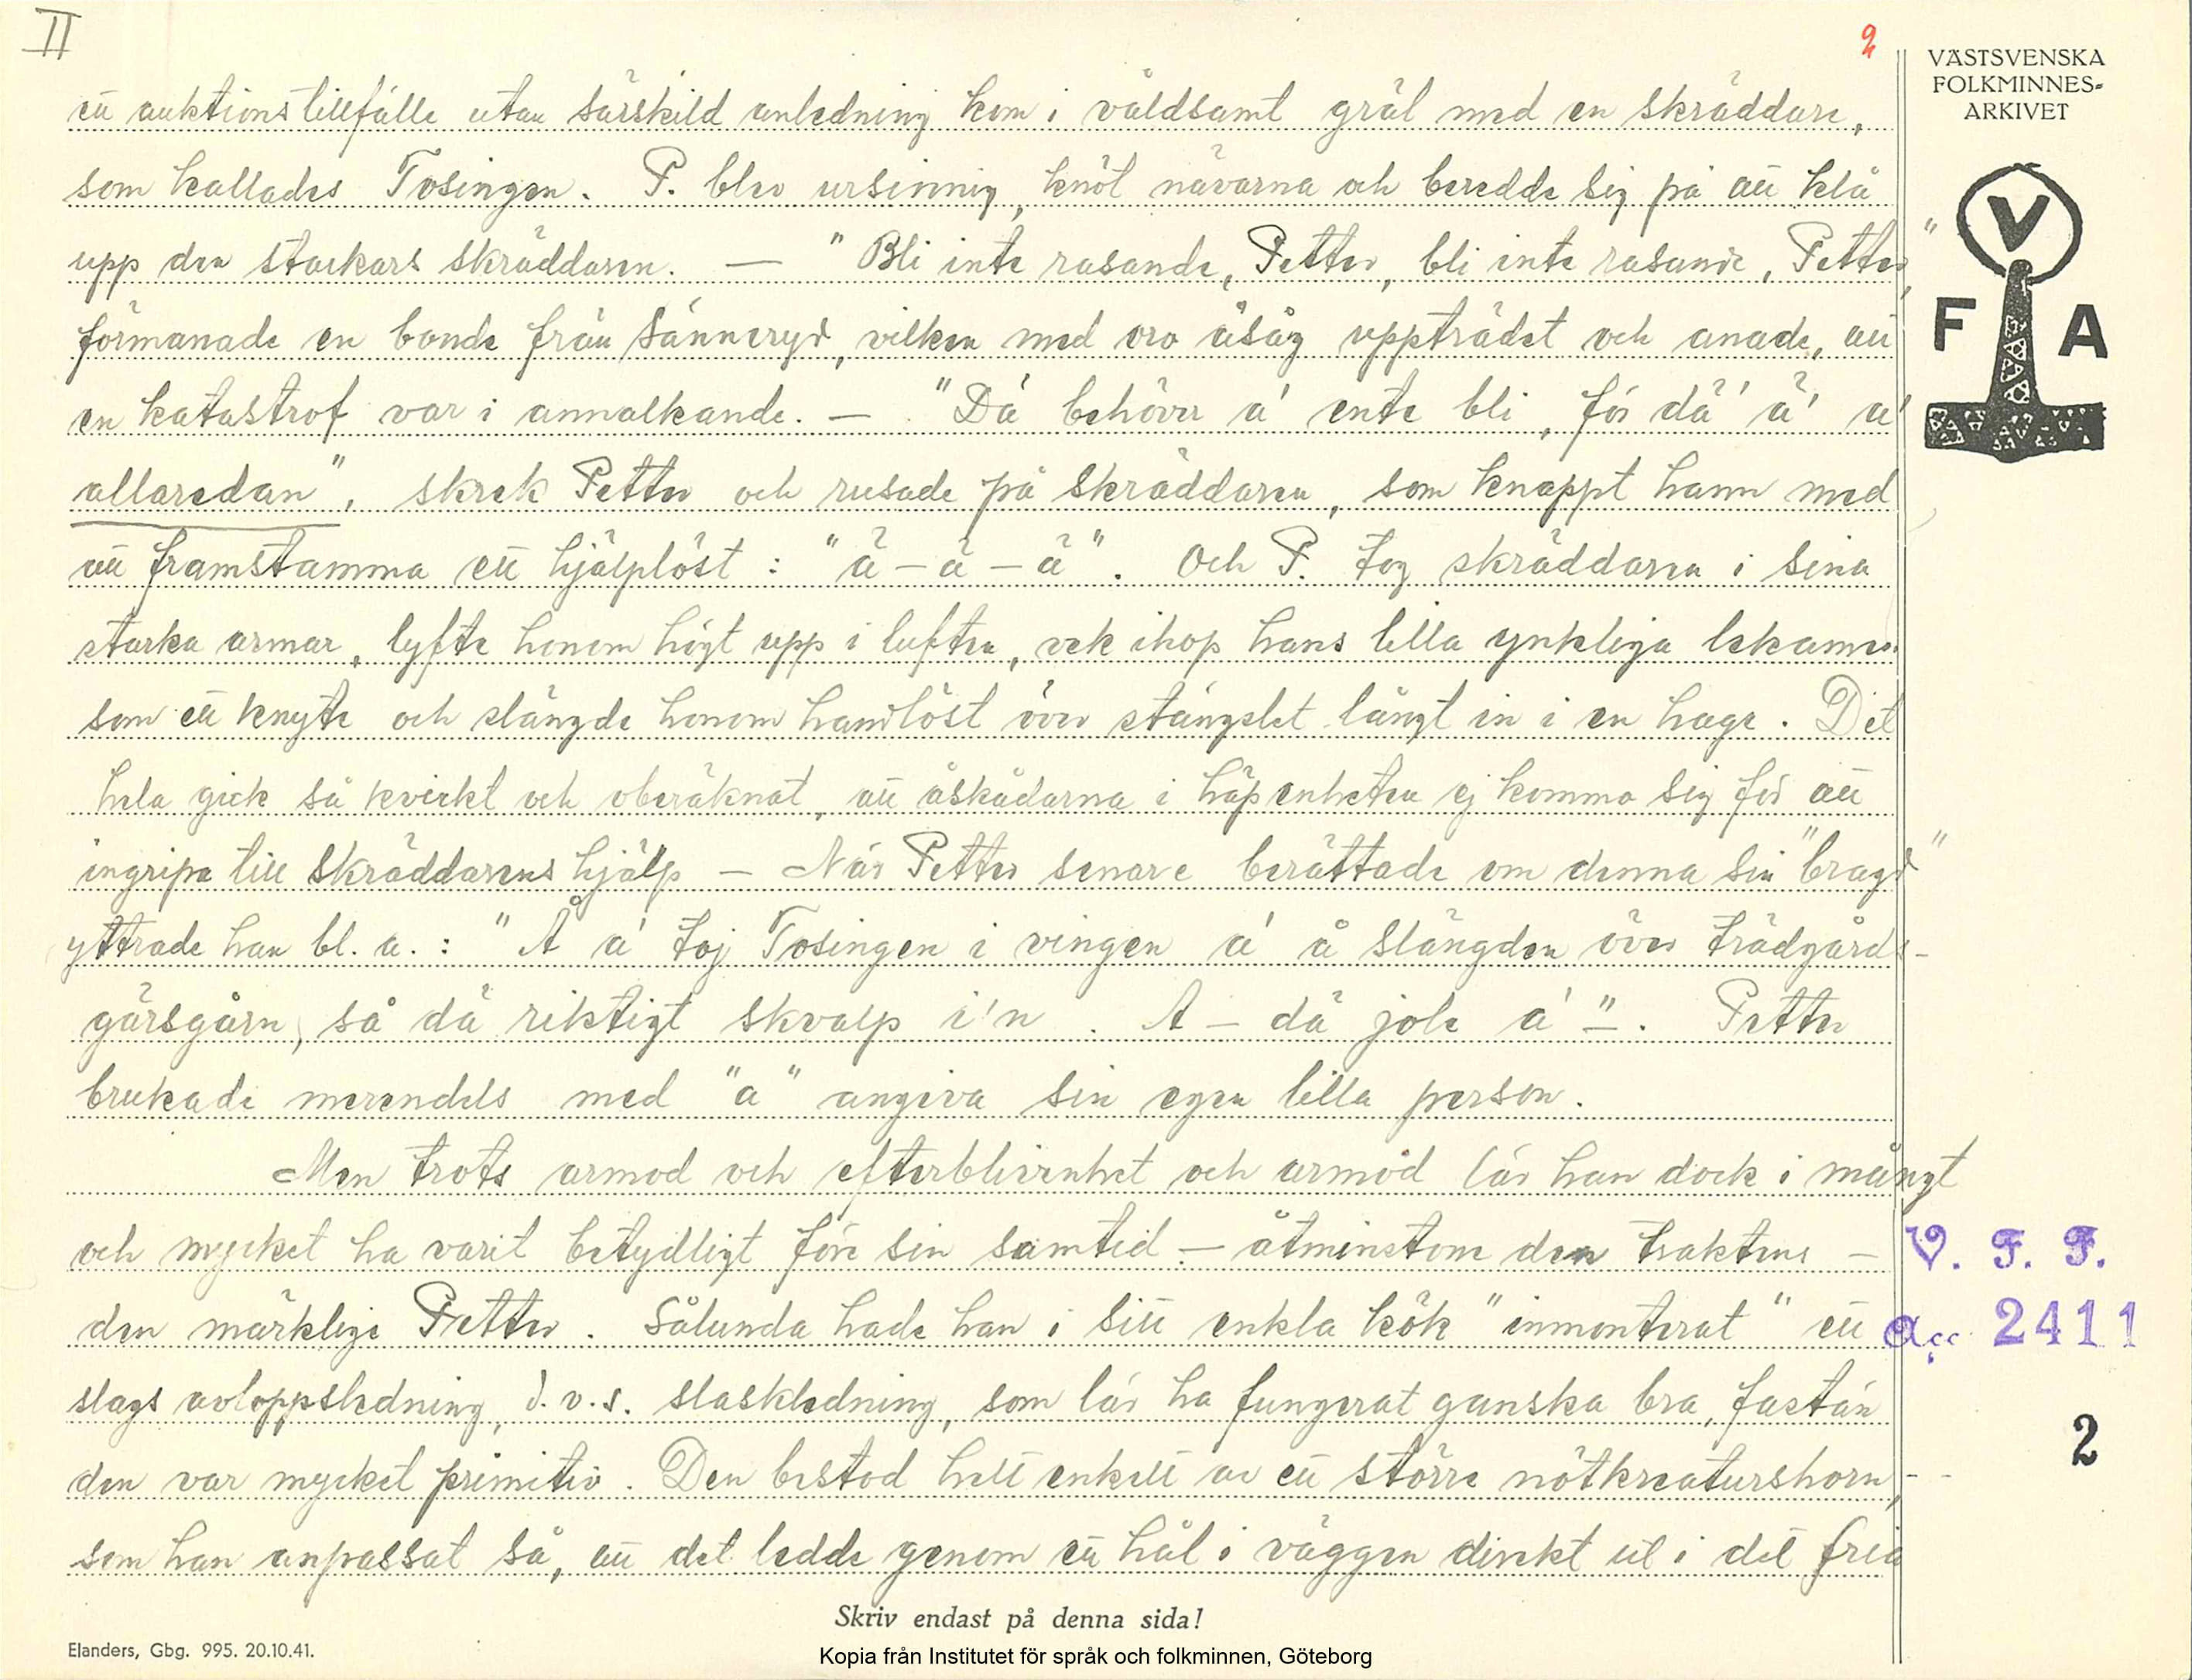 II
2
VÄSTSVENSKA
FOLKMINNES-
ARKIVET
V
F A
ett auktionstillfälle utan särskild anledning kom i våldsamt gräl med en skräddare,
som kallades Tosingen. P. blev ursinnig, knöt nävarna och beredde sig på att klå
upp den stackars skräddaren. — "Bli inte rasande, Petter, bli inte rasande, Petter,"
förmanade en bonde från Sänneryd, vilken med oro åsåg uppträdet och anade, att
en katastrof var i annalkande. — "Dä behöver a' ente bli, för dä' ä' a'
allaredan", skrek Petter och rusade på skräddaren, som knappt hann med
att framstamma ett hjälplöst: "ä – ä – ä". Och P. tog skräddaren i sina
starka armar, lyfte honom högt upp i luften, vek ihop hans lilla ynkliga lekamen
som ett knyte och slängde honom handlöst över stängslet långt in i en hage. Det
hela gick så kvickt och oberäknat, att åskådarna i häpenheten ej kommo sig för att
ingripa till skräddarens hjälp — När Petter senare berättade om denna sin "bragd"
yttrade han bl. a.: "Å a' toj Tosingen i vingen a' å slängden över trädgårds-
gärsgårn, så dä riktigt skvalp i'n. A – dä jole a'". Petter
brukade merendels med "a" angiva sin egen lilla person.
Men trots armod och efterblivenhet och armod lär han dock i mångt
och mycket ha varit betydligt före sin samtid – åtminstone den traktens –
den märklige Petter. Sålunda hade han i sitt enkla kök "inmonterat" ett
slags avloppsledning, d.v.s. slaskledning, som lär ha fungerat ganska bra, fastän
den var mycket primitiv. Den bestod helt enkelt av ett större nötkreaturshorn,
som han anpassat så, att det ledde genom ett hål i väggen direkt ut i det fria
V. F. F.
acc. 2411
2
Skriv endast på denna sida!
Elanders, Gbg. 995. 20.10.41.
Kopia från Institutet för språk och folkminnen, Göteborg